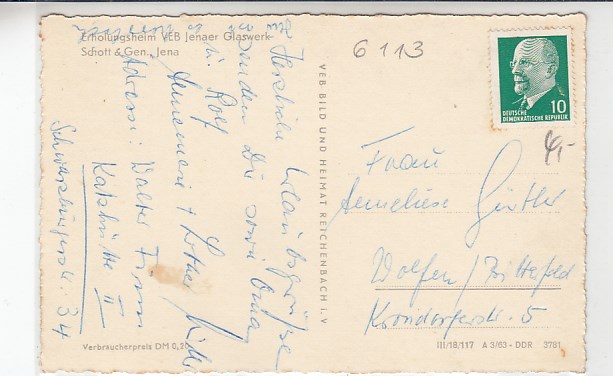 Erholungsheim VEB Jenaer Glaswerk
Schott & Gen., Jena
6113
Herzliche Urlaubsgrüße
senden Dir sowie Oma
u. Rolf
Annemarie + Lothar
Adresse: Walter
Katzhütte II
Schwarzburgerstr. 34
VEB BILD UND HEIMAT REICHENBACH i. V
DEUTSCHE
DEMOKRATISCHE REPUBLIK
10
4,-
Frau
Anneliese Günther
Wolfen / Bitterfeld
Krondorferstr. 5
Verbraucherpreis DM 0,20
III/18/117 A 3/63 - DDR 3781